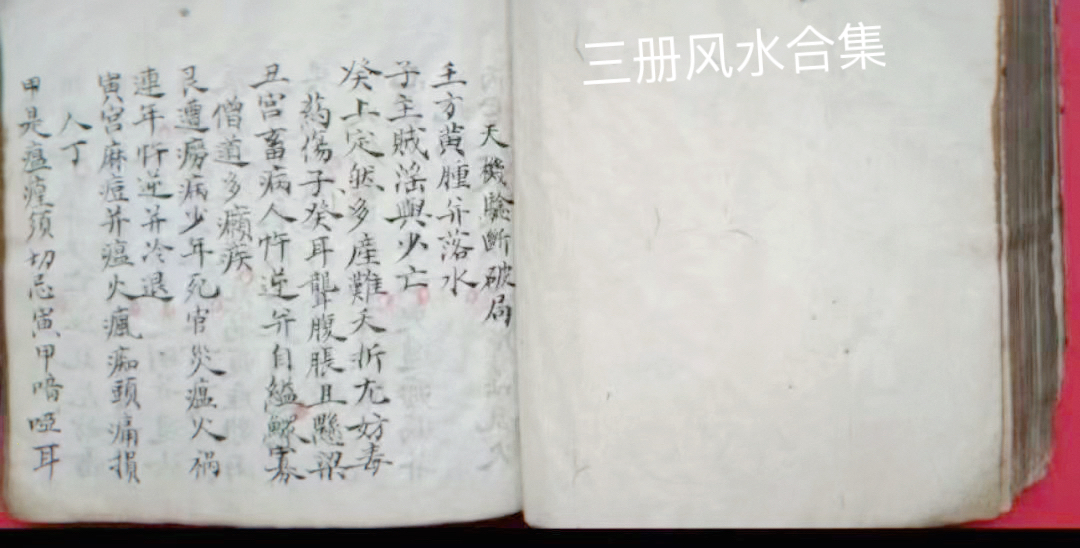 三册风水合集
天機驗斷破局
壬方黄腫并落水
子主賊淫與少亡
癸上定然多産難夭折尤妨毒
药傷子癸耳聾腹脹且懸梁
丑宫畜病人忤逆并自縊鰥寡
僧道多癩疾
艮遭癆病少年死官災瘟火禍
連年忤逆并冷退
寅宫麻痘并瘟火瘋痴頭痛損
人丁
甲是瘟㾮须切忌寅甲喑哑耳